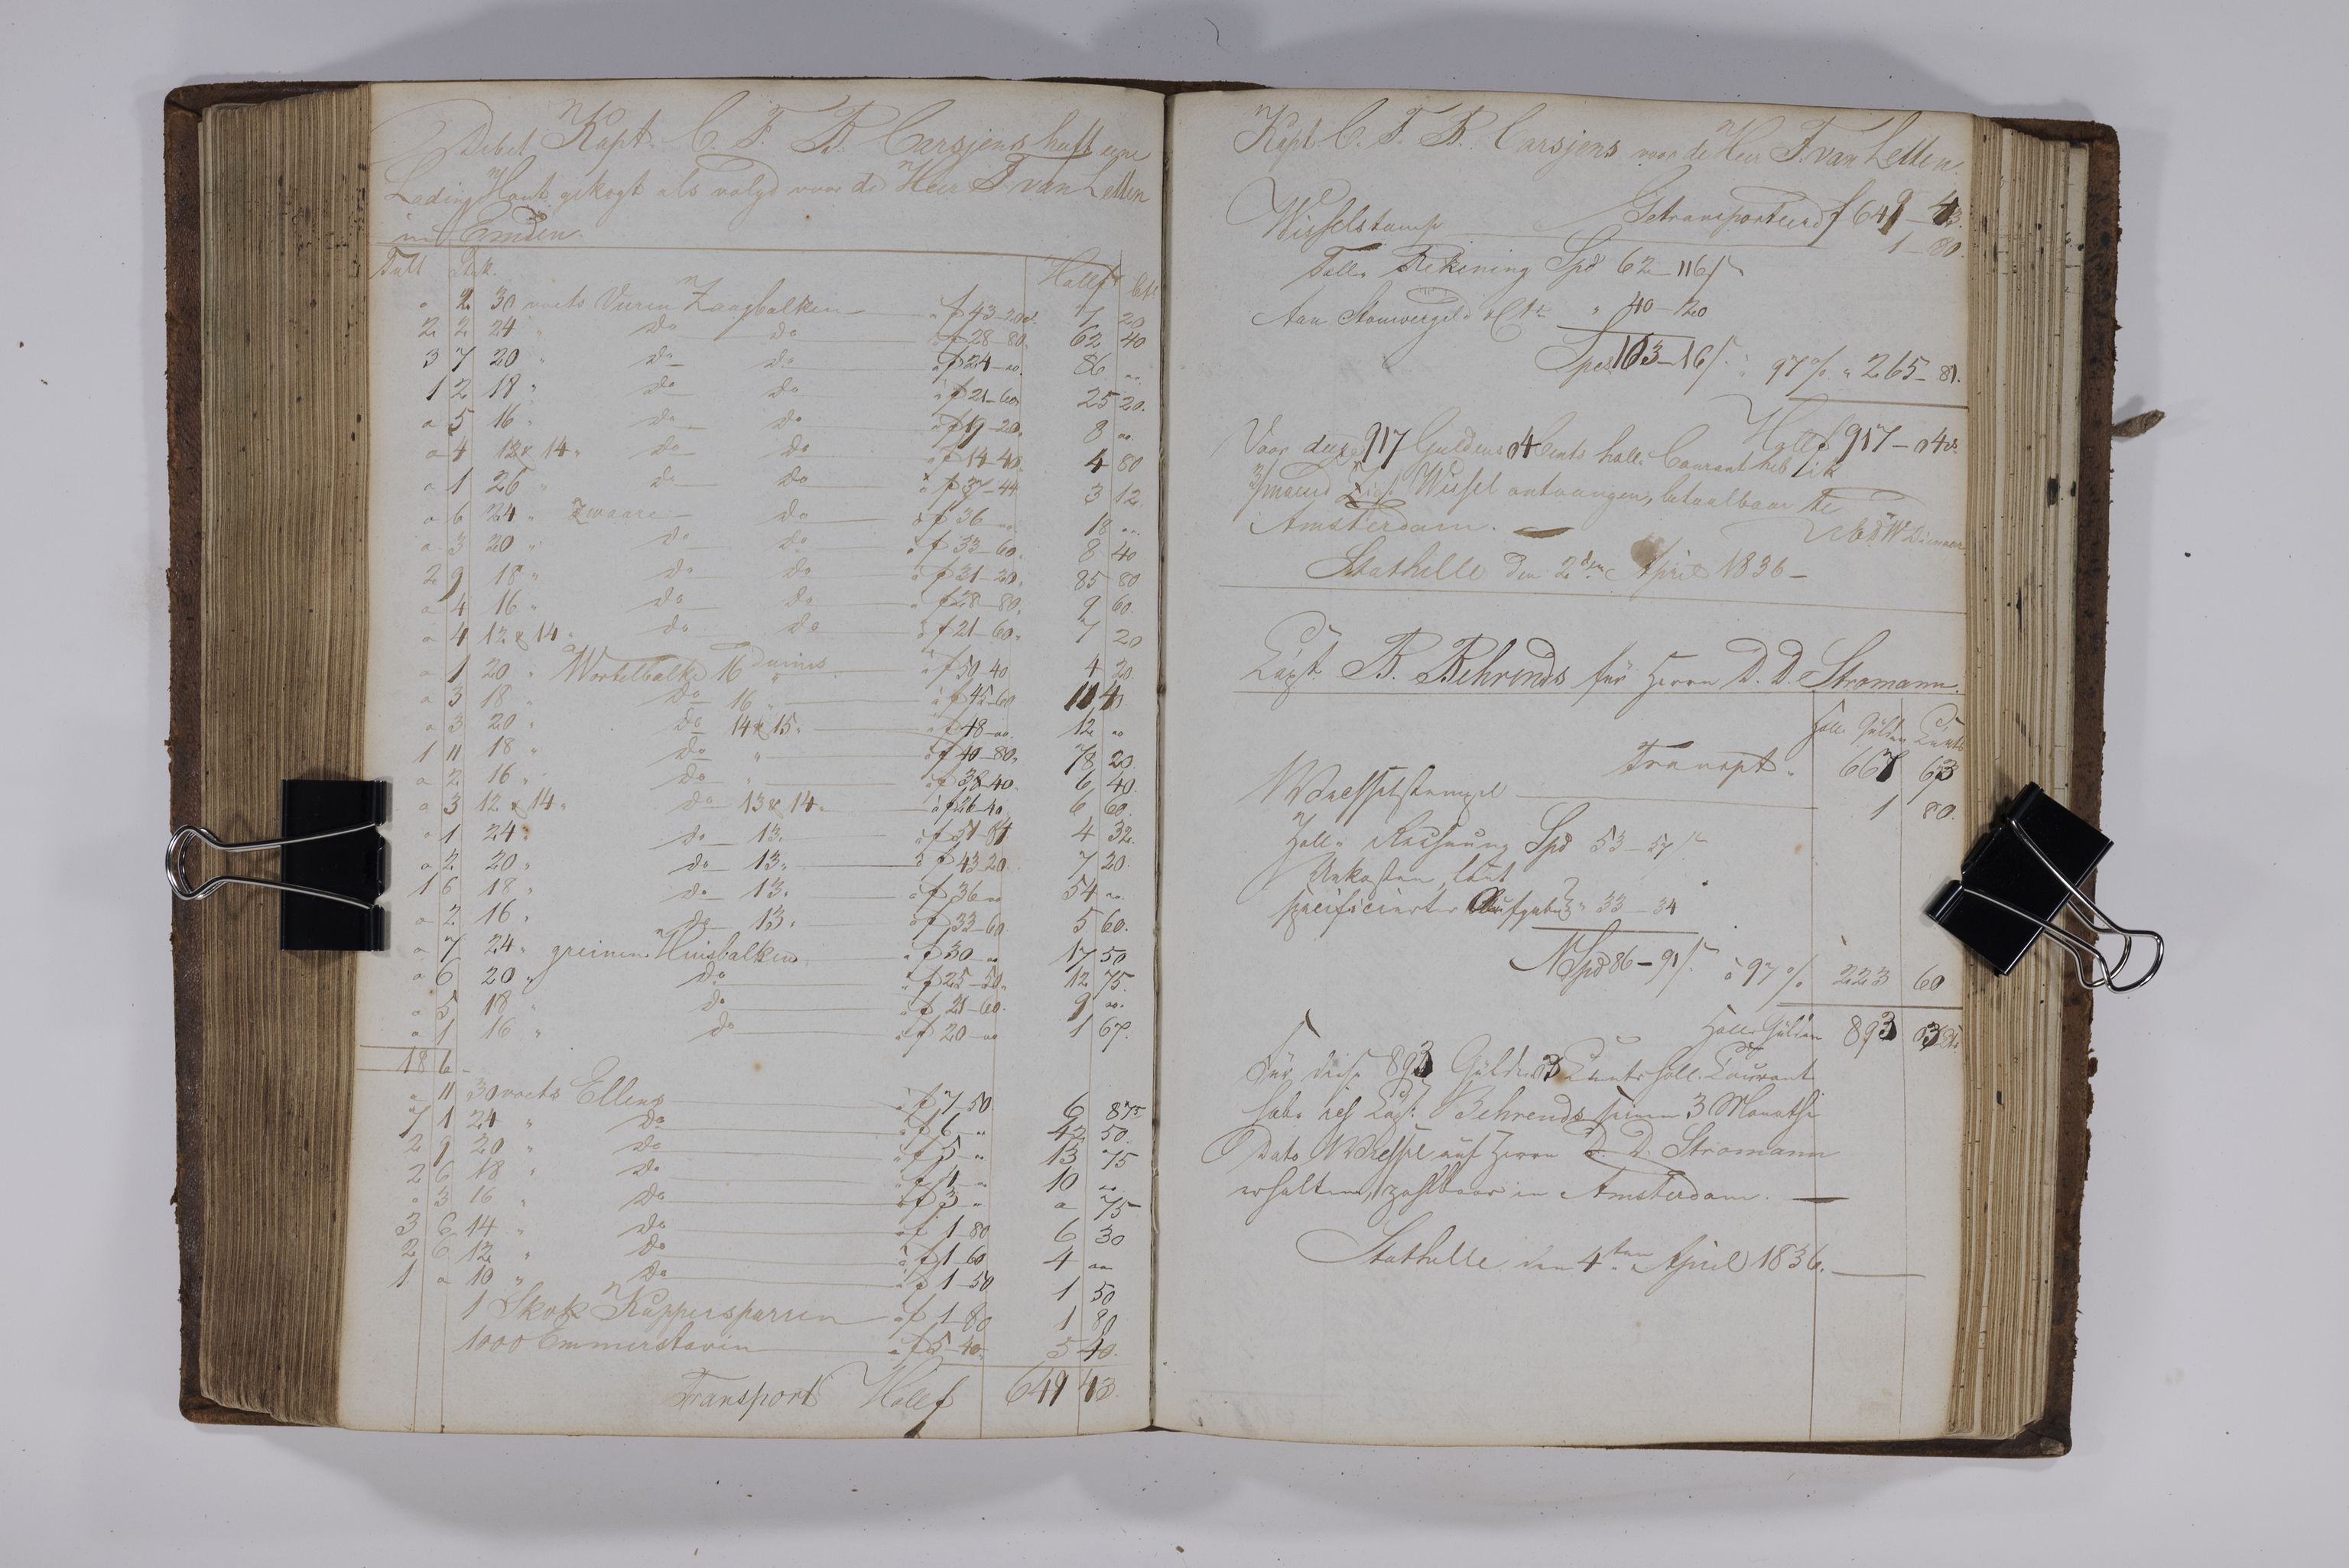 Debet Kapt. C. F. B. Carsjens haft eene
Lading Hout gekogt als volgd voor de Heer F van Letten
in Emden.
Tult Stk. Hollf Cts
" 2 30 voets Vuren Zaagbalken à f 43-20 d. 7 20
2 2 24 " do do à f 28-80. 62 40
3 7 20 " do do à f 24-". 86 ".
1 2 18 " do do à f 21-60 25 20.
" 5 16 " do do à f 19-20. 8 ".
" 4 12 & 14 " do do à f 14-40. 4 80
" 1 26 " do do à f 37-44 3 12.
" 6 24 " Zwaare do à f 36-" 18 ".
" 3 20 " do do à f 33-60. 8 40
2 9 18 " do do à f 31-20. 85 80
" 4 16 " do do à f 28-80. 9 60.
" 4 12 & 14 " do do à f 21-60. 7 20
" 1 20 " Wortelbalke 16 duims à f 50-40 4 20.
" 3 18 " do 16 " à f 45-60 11 40
" 3 20 " do 14 & 15 " à f 48-". 12 "
1 11 18 " do " à f 40-80. 78 20.
" 2 16 " do " à f 38-40. 6 40.
" 3 12 & 14 " do 13 & 14 " à f 26-40. 6 60.
" 1 24 " do 13 " à f 51-84 4 32.
" 2 20 " do 13 " à f 43 20 7 20.
1 6 18 " do 13 " à f 36 " 54 ".
" 2 16 " do 13 " à f 33-60. 5 60.
" 7 24 " greinen Huisbalken à f 30 " 17 50
" 6 20 " do à f 25-50. 12 75.
" 5 18 " do à f 21-60. 9 ".
" 1 16 " do à f 20-" 1 67.
18 6 -
" 11 30 voets Ellens à f 7-50. 6 87 5
7 1 24 " do à f 6-" 42 50
2 9 20 " do à f 5-" 13 75
2 6 18 " do à f 4-" 10 ".
" 3 16 " do à f 3-" " 75
3 6 14 " do à f 1-80 6 30
2 6 12 " do à f 1-60 4 "
1 " 10 " do à f 1-50 1 50
1 Skok Kuppersparren à f 1-80 1 80
1000 Emmerstaven à f 5-40. 5 40.
Transport Hollf 649 43.
Kapt. C. F. B. Carsjens voor de Heer F. van Letten.
Getransporteerd f 649-43.
Wisselstamp 1-80.
Toll Rekening Spd 62-116 ß
Aan Stouwergeld " 40-20
Spes 103-16 ß. " 97 % " 265-81.
Hollf 917-04 cs.
Voor deze 917 Guldens 04 Cents holl. Courant heb ik
3/maend Wissel ontvangen, betaalbaar te
Amsterdam.
Stathelle den 2den April 1836 -
Capt. B. Behrends für Herrn D. D. Stromann.
Holl. Gulden Cents
Transpt. " 667 63
Wechselstempel 1 80.
Zoll " Rechnung Spd 53-57 ß
Unkosten, laut
specificierter Aufgabe " 33-34
Spd 86-91 ß. à 97 % 223 60
Holl. Gulden 893 03 Cts
Für diese 893 Gulden 3 Cents holl. Courant
habe ich Capt. Behrends seinen 3 Monaths
Dato Wechsel auf Herrn D. D. Stromann
erhalten, zahlbar in Amsterdam.
Stathelle den 4ten April 1836.